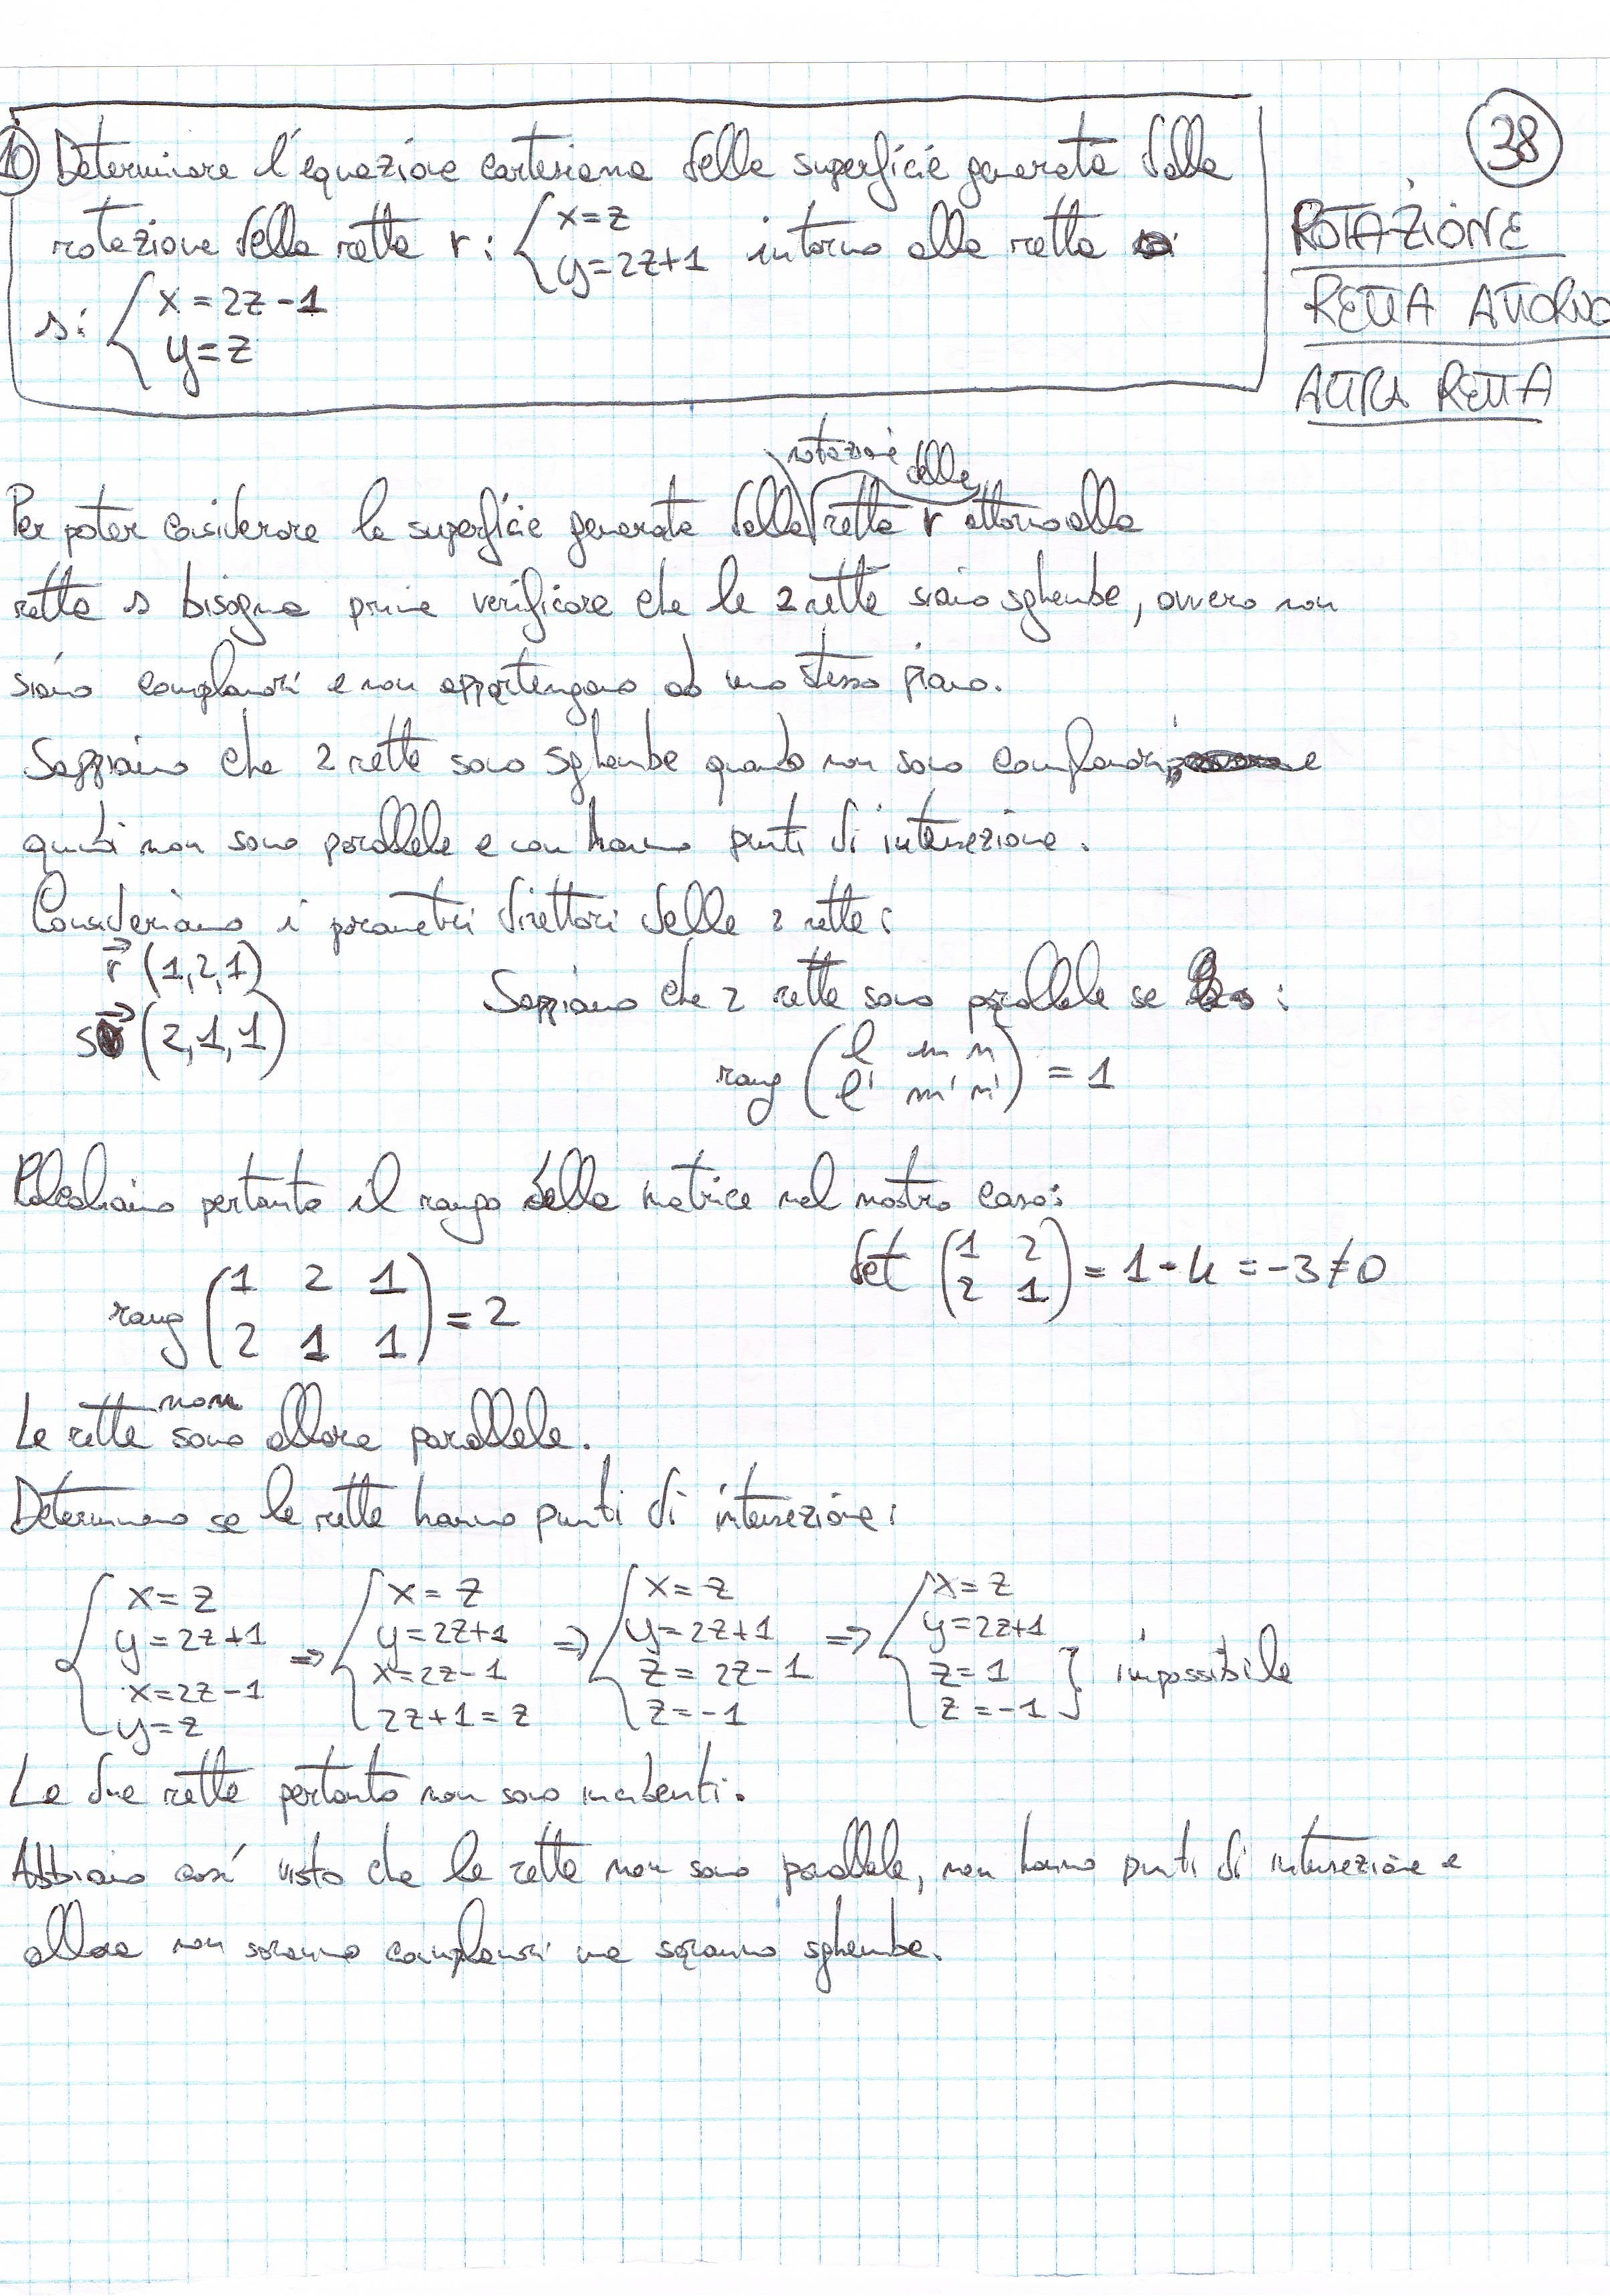 10 Determinare l'equazione cartesiana della superficie generata dalla
rotazione della retta r: { x=z
y=2z+1 intorno alla retta
s: { x=2z-1
y=z
38
ROTAZIONE
RETTA ATTORNO
ALTRA RETTA
rotazione della
Per poter considerare la superficie generata dalla retta r attorno alla
retta s bisogna prima verificare che le 2 rette siano sghembe, ovvero non
siano complanari e non appartengano ad uno stesso piano.
Sappiamo che 2 rette sono sghembe quando non sono complanari, e
quindi non sono parallele e non hanno punti di intersezione.
Consideriamo i parametri direttori delle 2 rette:
r (1,2,1)
s (2,1,1)
Sappiamo che 2 rette sono parallele se :
rang ( l m n
l' m' n' ) = 1
Calcoliamo pertanto il rango della matrice nel nostro caso:
rang ( 1 2 1
2 1 1 ) = 2
det ( 1 2
2 1 ) = 1-4 = -3≠0
non
Le rette sono allora parallele.
Determino se le rette hanno punti di intersezione:
{ x=z
y=2z+1
x=2z-1
y=z
=> { x=z
y=2z+1
x=2z-1
2z+1=z
=> { x=z
y=2z+1
z=2z-1
z=-1
=> { x=z
y=2z+1
z=1
z=-1 } impossibile
Le due rette pertanto non sono incidenti.
Abbiamo così visto che le rette non sono parallele, non hanno punti di intersezione e
allora non saranno complanari ma saranno sghembe.